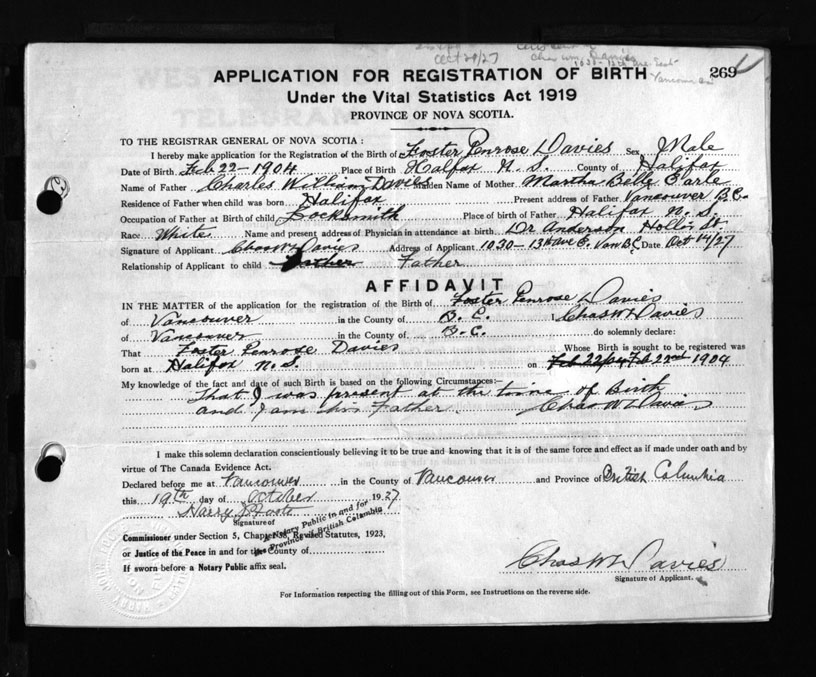 Oct 20/27
269
APPLICATION FOR REGISTRATION OF BIRTH
Under the Vital Statistics Act 1919
PROVINCE OF NOVA SCOTIA.
TO THE REGISTRAR GENERAL OF NOVA SCOTIA :
I hereby make application for the Registration of the Birth of Foster Penrose Davies Sex Male
Date of Birth Feb 22-1904 Place of Birth Halfax N. S. County of Halifax
Name of Father Charles William Davies Maiden Name of Mother Martha Belle Clarke
Residence of Father when child was born Halifax Present address of Father Vancouver B.C.
Occupation of Father at Birth of child Locksmith Place of birth of Father Halifax N. S.
Race White Name and present address of Physician in attendance at birth Dr Anderson Hollis St.
Signature of Applicant Chas W Davies Address of Applicant 1030-13th ave E. Van BC Date Oct 14/27
Relationship of Applicant to child Father
AFFIDAVIT
IN THE MATTER of the application for the registration of the Birth of Foster Penrose Davies
of Vancouver in the County of B. C. Chas W Davies
of Vancouver in the County of B-C. do solemnly declare:
That Foster Penrose Davies Whose Birth is sought to be registered was
born at Halifax N. S. on Feb 22nd 1904
My knowledge of the fact and date of such Birth is based on the following Circumstances:—
That I was present at the time of Birth
and I am his Father. Chas W Davies
I make this solemn declaration conscientiously believing it to be true and knowing that it is of the same force and effect as if made under oath and by
virtue of The Canada Evidence Act.
Declared before me at Vancouver in the County of Vancouver and Province of British Columbia
this 19th day of October 1927
Harry
Signature of
A Notary Public in and for
the Province of British Columbia
Commissioner under Section 5, Chapter 38, Revised Statutes, 1923,
or Justice of the Peace in and for the County of
If sworn before a Notary Public affix seal.
Chas W Davies
Signature of Applicant.
For Information respecting the filling out of this Form, see Instructions on the reverse side.